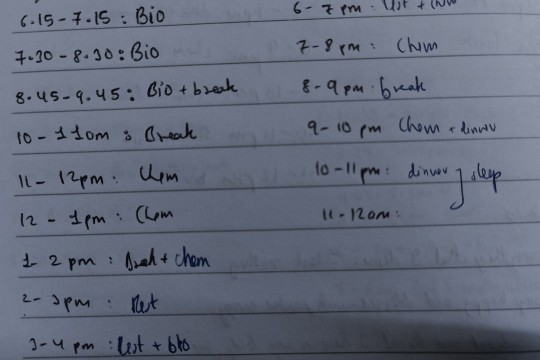 6.15-7.15 : Bio
7.30 - 8.30 : Bio
8.45-9.45 : Bio + break
10 - 11am : Break
11 - 12pm : Chem
12 - 1pm : Chem
1- 2 pm : Break + chem
2- 3pm : Rest
3-4 pm : Rest + bio
6- 7 pm : Rest +
7-8 pm : Chem
8-9 pm : break
9-10 pm Chem + dinner
10-11pm : dinner } sleep
11-12am :